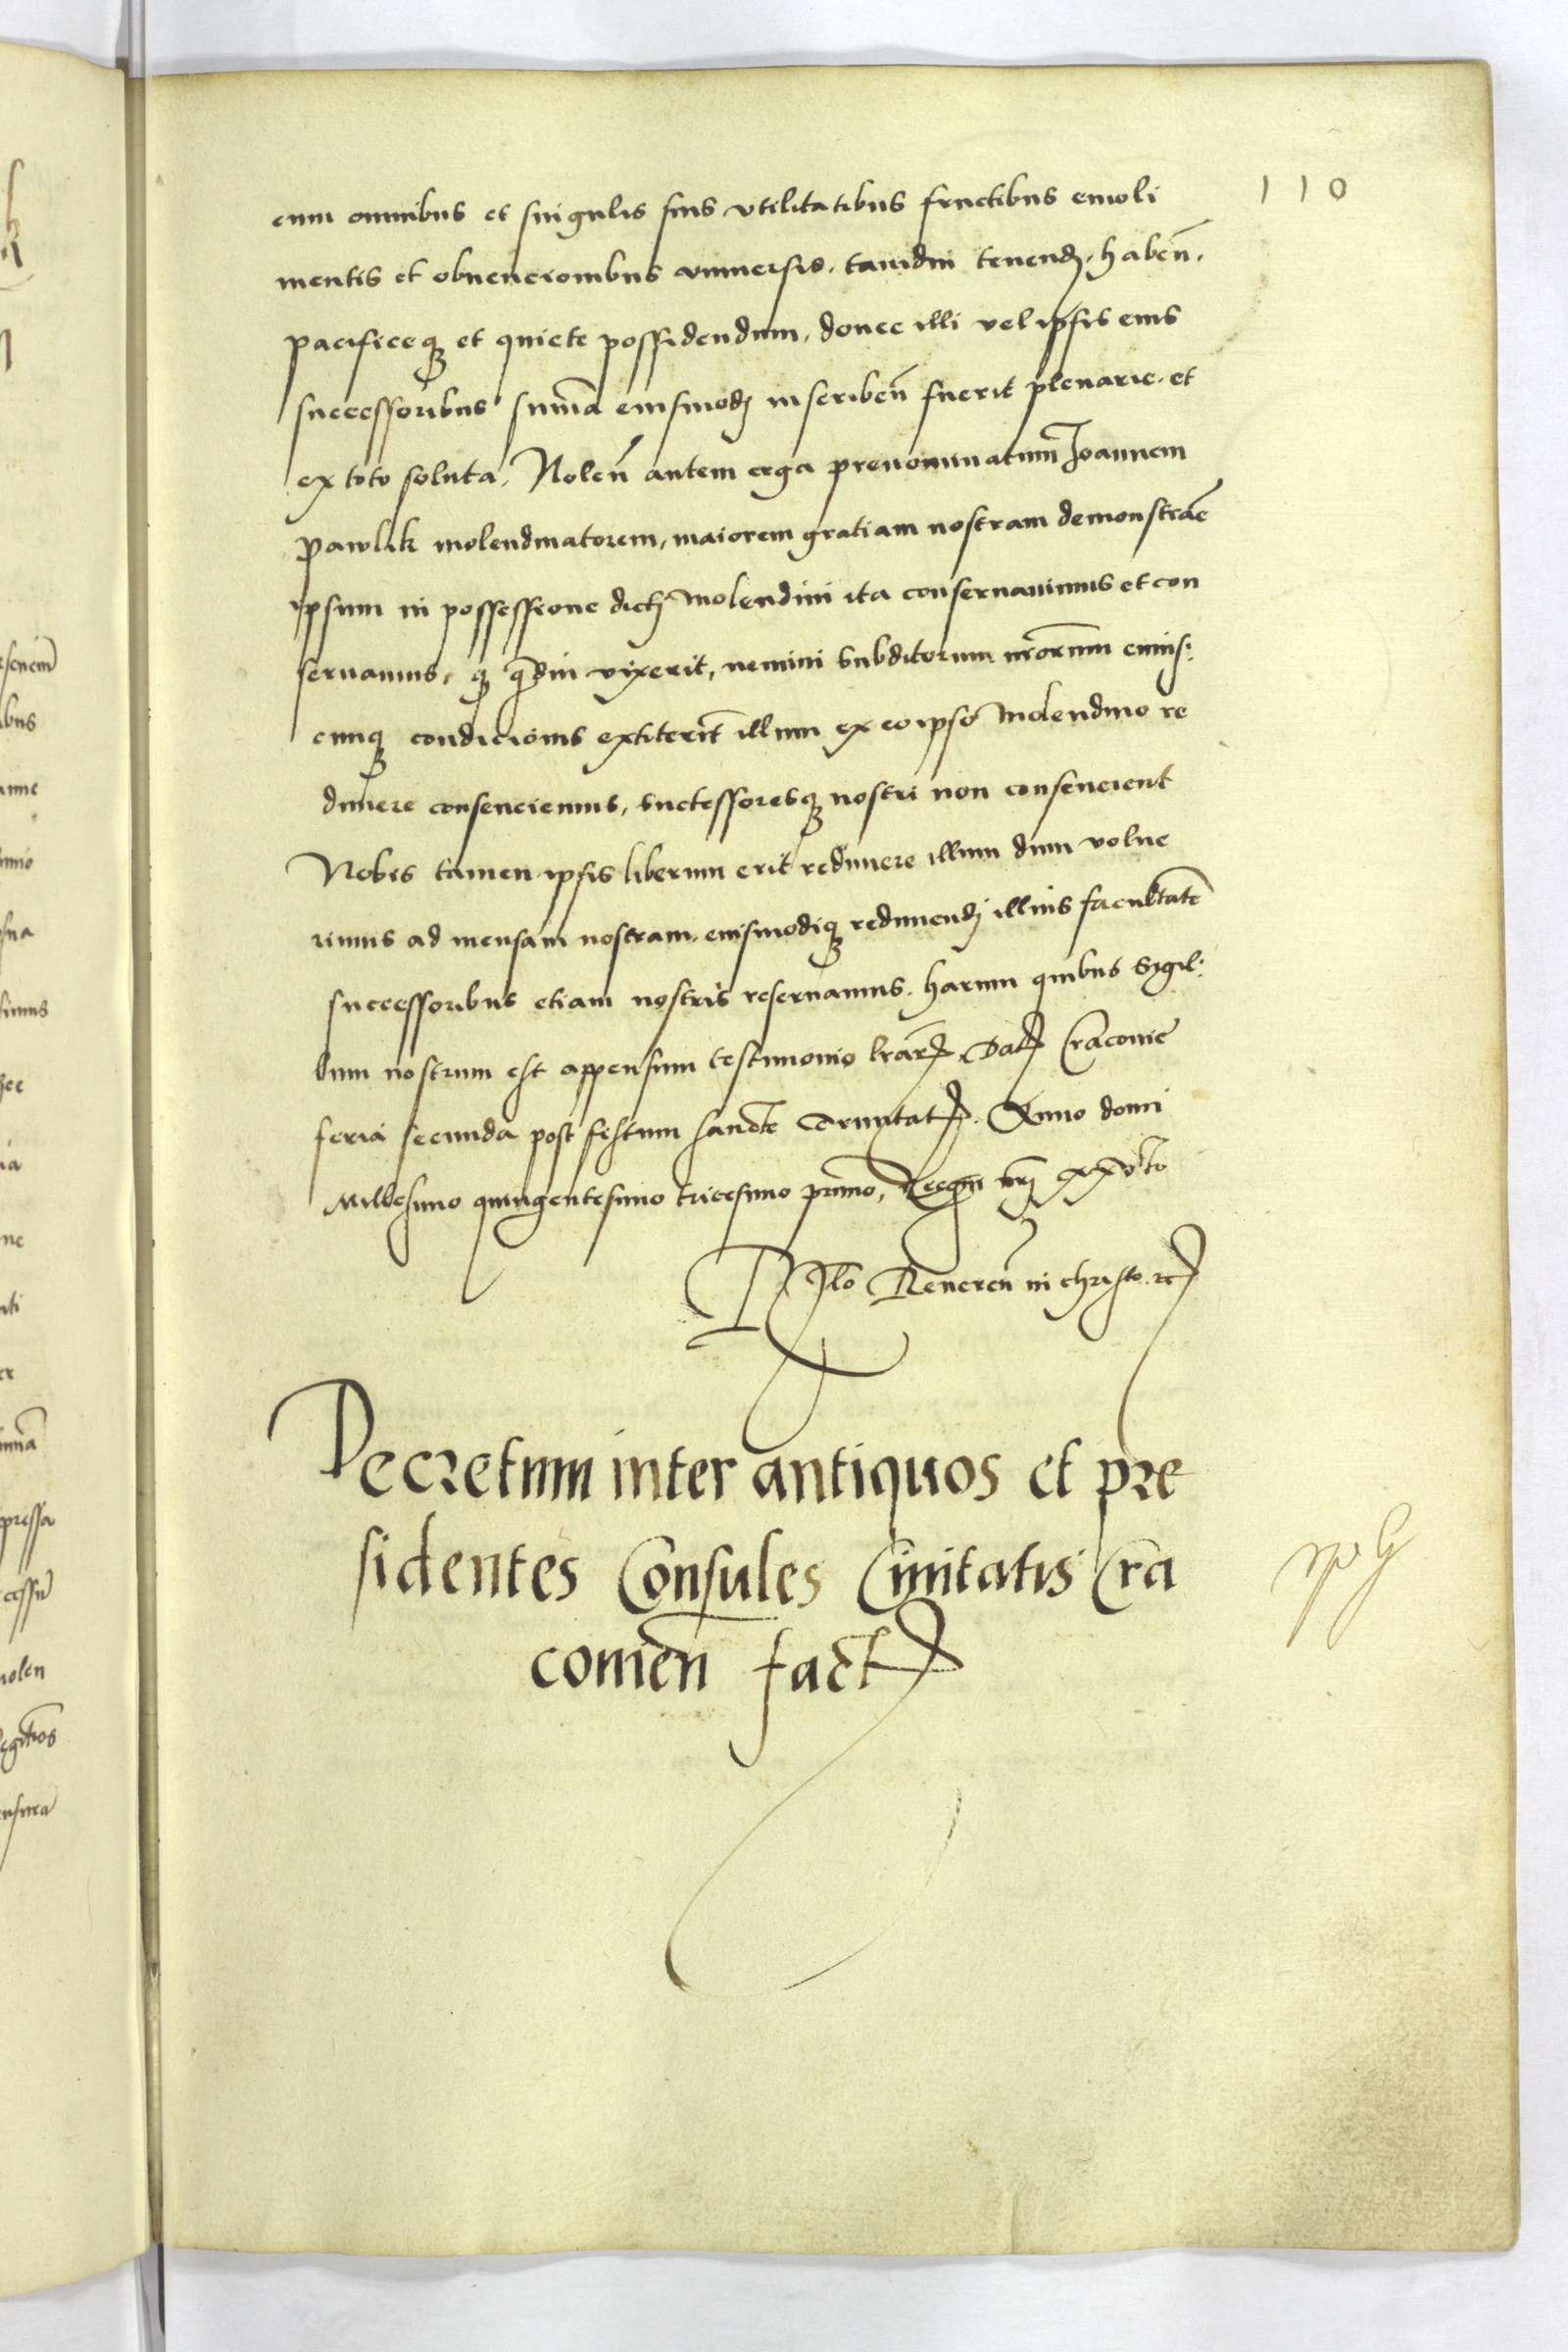 110
cum omnibus et singulis suis vtilitatibus fructibus emoli
mentis et obuencionibus vniuersis, tamdiu tenend, haben̄,
pacificeq et quiete possidendum, donec illi vel ipsis eius
successoribus sum̄a eiusmodj inscriben̄ fuerit plenarie, et
ex toto soluta, Volen̄ autem erga prenominatum Joannem
pawlik molendinatorem, maiorem gratiam nostram demonstrar̄e
ipsum in possessione dictj molendini ita conseruauimus et con
seruamus, q q̄diu vixerit, nemini subditorum nr̄orum cuius
cunq condicionis extiterit illum ex eo ipso molendino re
dimere consenciemus, successoresq nostri non consencient
Nobis tamen ipsis liberum erit redimere illum dum volue
rimus ad mensam nostram, eiusmodiq redimendj illius facultatē
successoribus etiam nostris reseruamus, harum quibus sigil
lum nostrum est appensum testimonio lr̄ar, Dat Cracouie
feria secunda post festum sancte Trinitat, Anno domi
Millesimo quingentesimo tricesimo primo, Regni nrj xxvto
Rlo Reueren̄ in christo rc
Decretum inter antiquos et pre
sidentes Consules Ciuitatis Cra
couien̄ fact